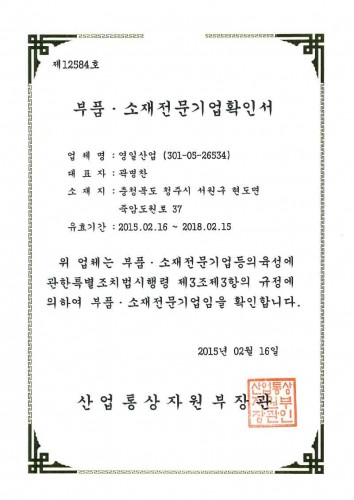 제12584호
부품·소재전문기업확인서
업 체 명 : 영일산업 (301-05-26534)
대 표 자 : 곽병찬
소 재 지 : 충청북도 청주시 서원구 현도면
죽암도원로 37
유효기간 : 2015.02.16 ~ 2018.02.15
위 업체는 부품·소재전문기업등의육성에
관한특별조치법시행령 제3조제3항의 규정에
의하여 부품·소재전문기업임을 확인합니다.
2015년 02월 16일
산업통상자원부장관
산업통상
자원부
장관인